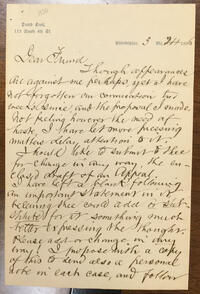 David Scull,
125 South 4th St.
Philadelphia, 3 Mo. 24
Dear Friend,
Though appearances
are against me perhaps, yet I have
not forgotten our conversation two
weeks since and the proposal I made.
Not feeling however the need of
haste, I have let more pressing
matters delay attention to it.
I should like to submit to thee
for change in any way the en-
closed draft of an Appeal.
I have left a blank following
an important statement in it
believing thee could add or sub-
stitute for it something much
better expressing the thought.
Please add or change in any
way. I purpose with a copy
of this to send also a personal
note in each case, and follow